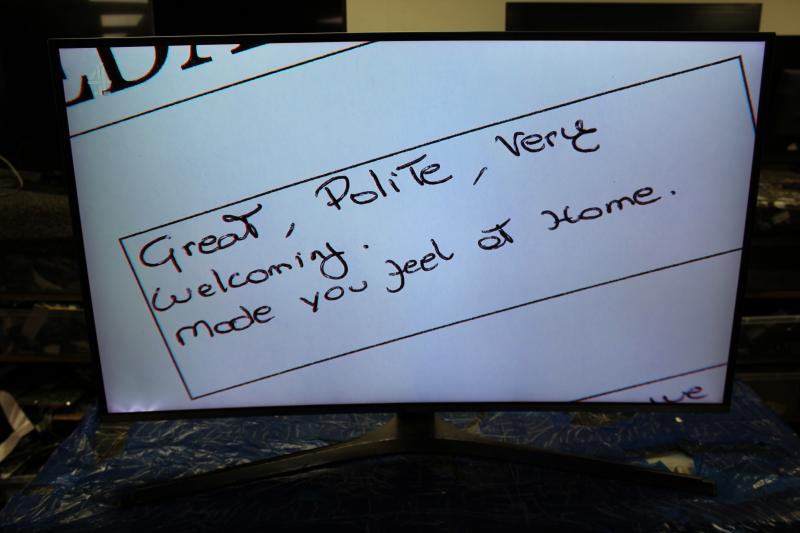 Great, Polite, Very
welcoming.
made you feel at Home.
we